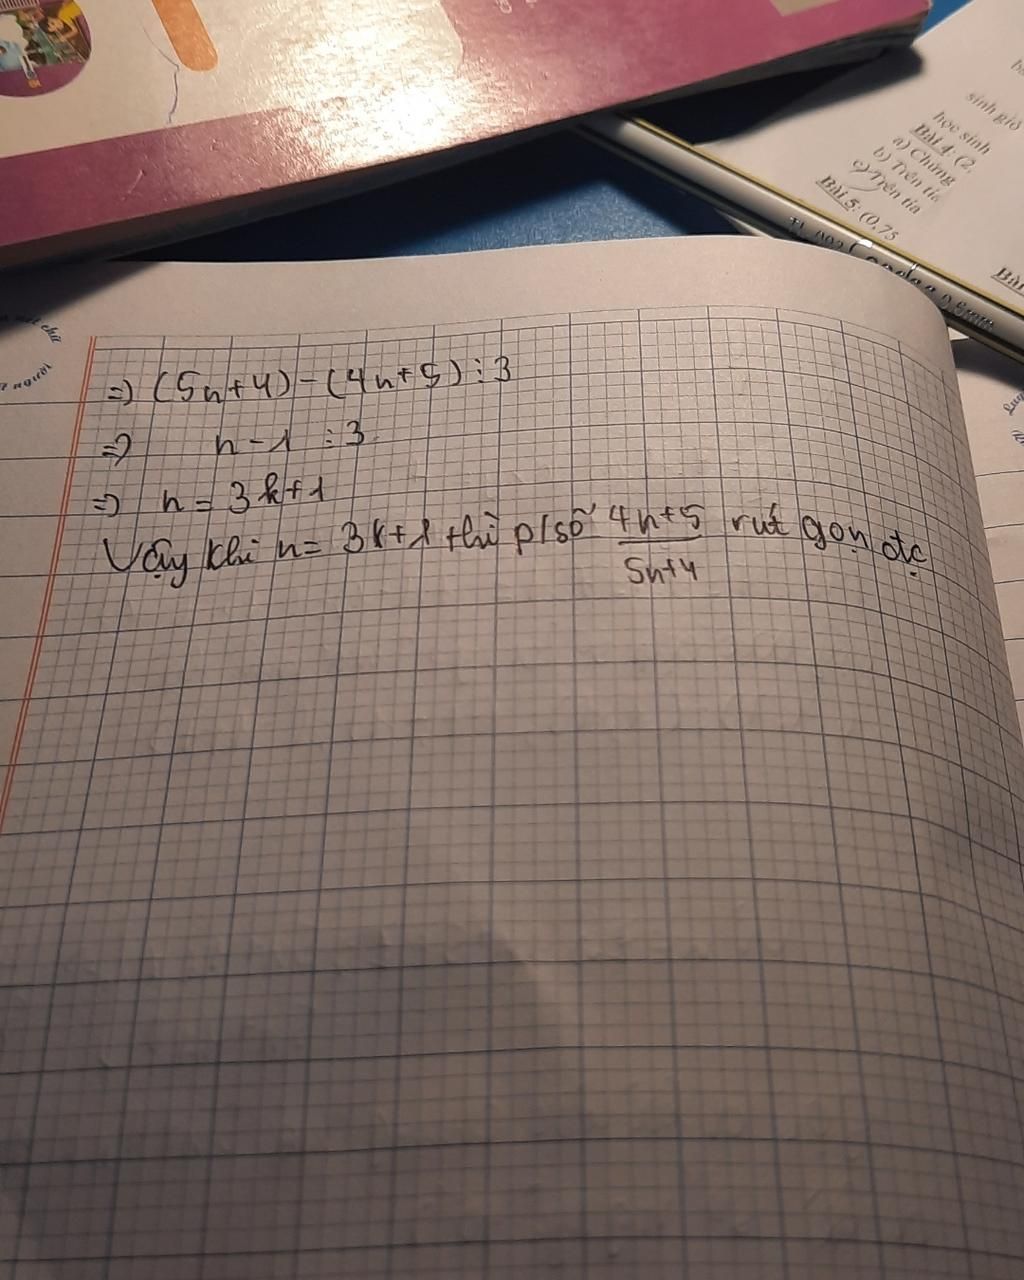 sinh giỏ
học sinh
Bài 4: (2,
a) Chứng
b) Trên tia
c) Trên tia
Bài 5: (0,75
Bài
0.5mm
=) (5n+4) - (4n+5) ⋮ 3
=) n-1 ⋮ 3
=) n = 3k+1
Vậy khi n = 3k+1 thì p/số 4n+5 rút gọn đc
5n+4